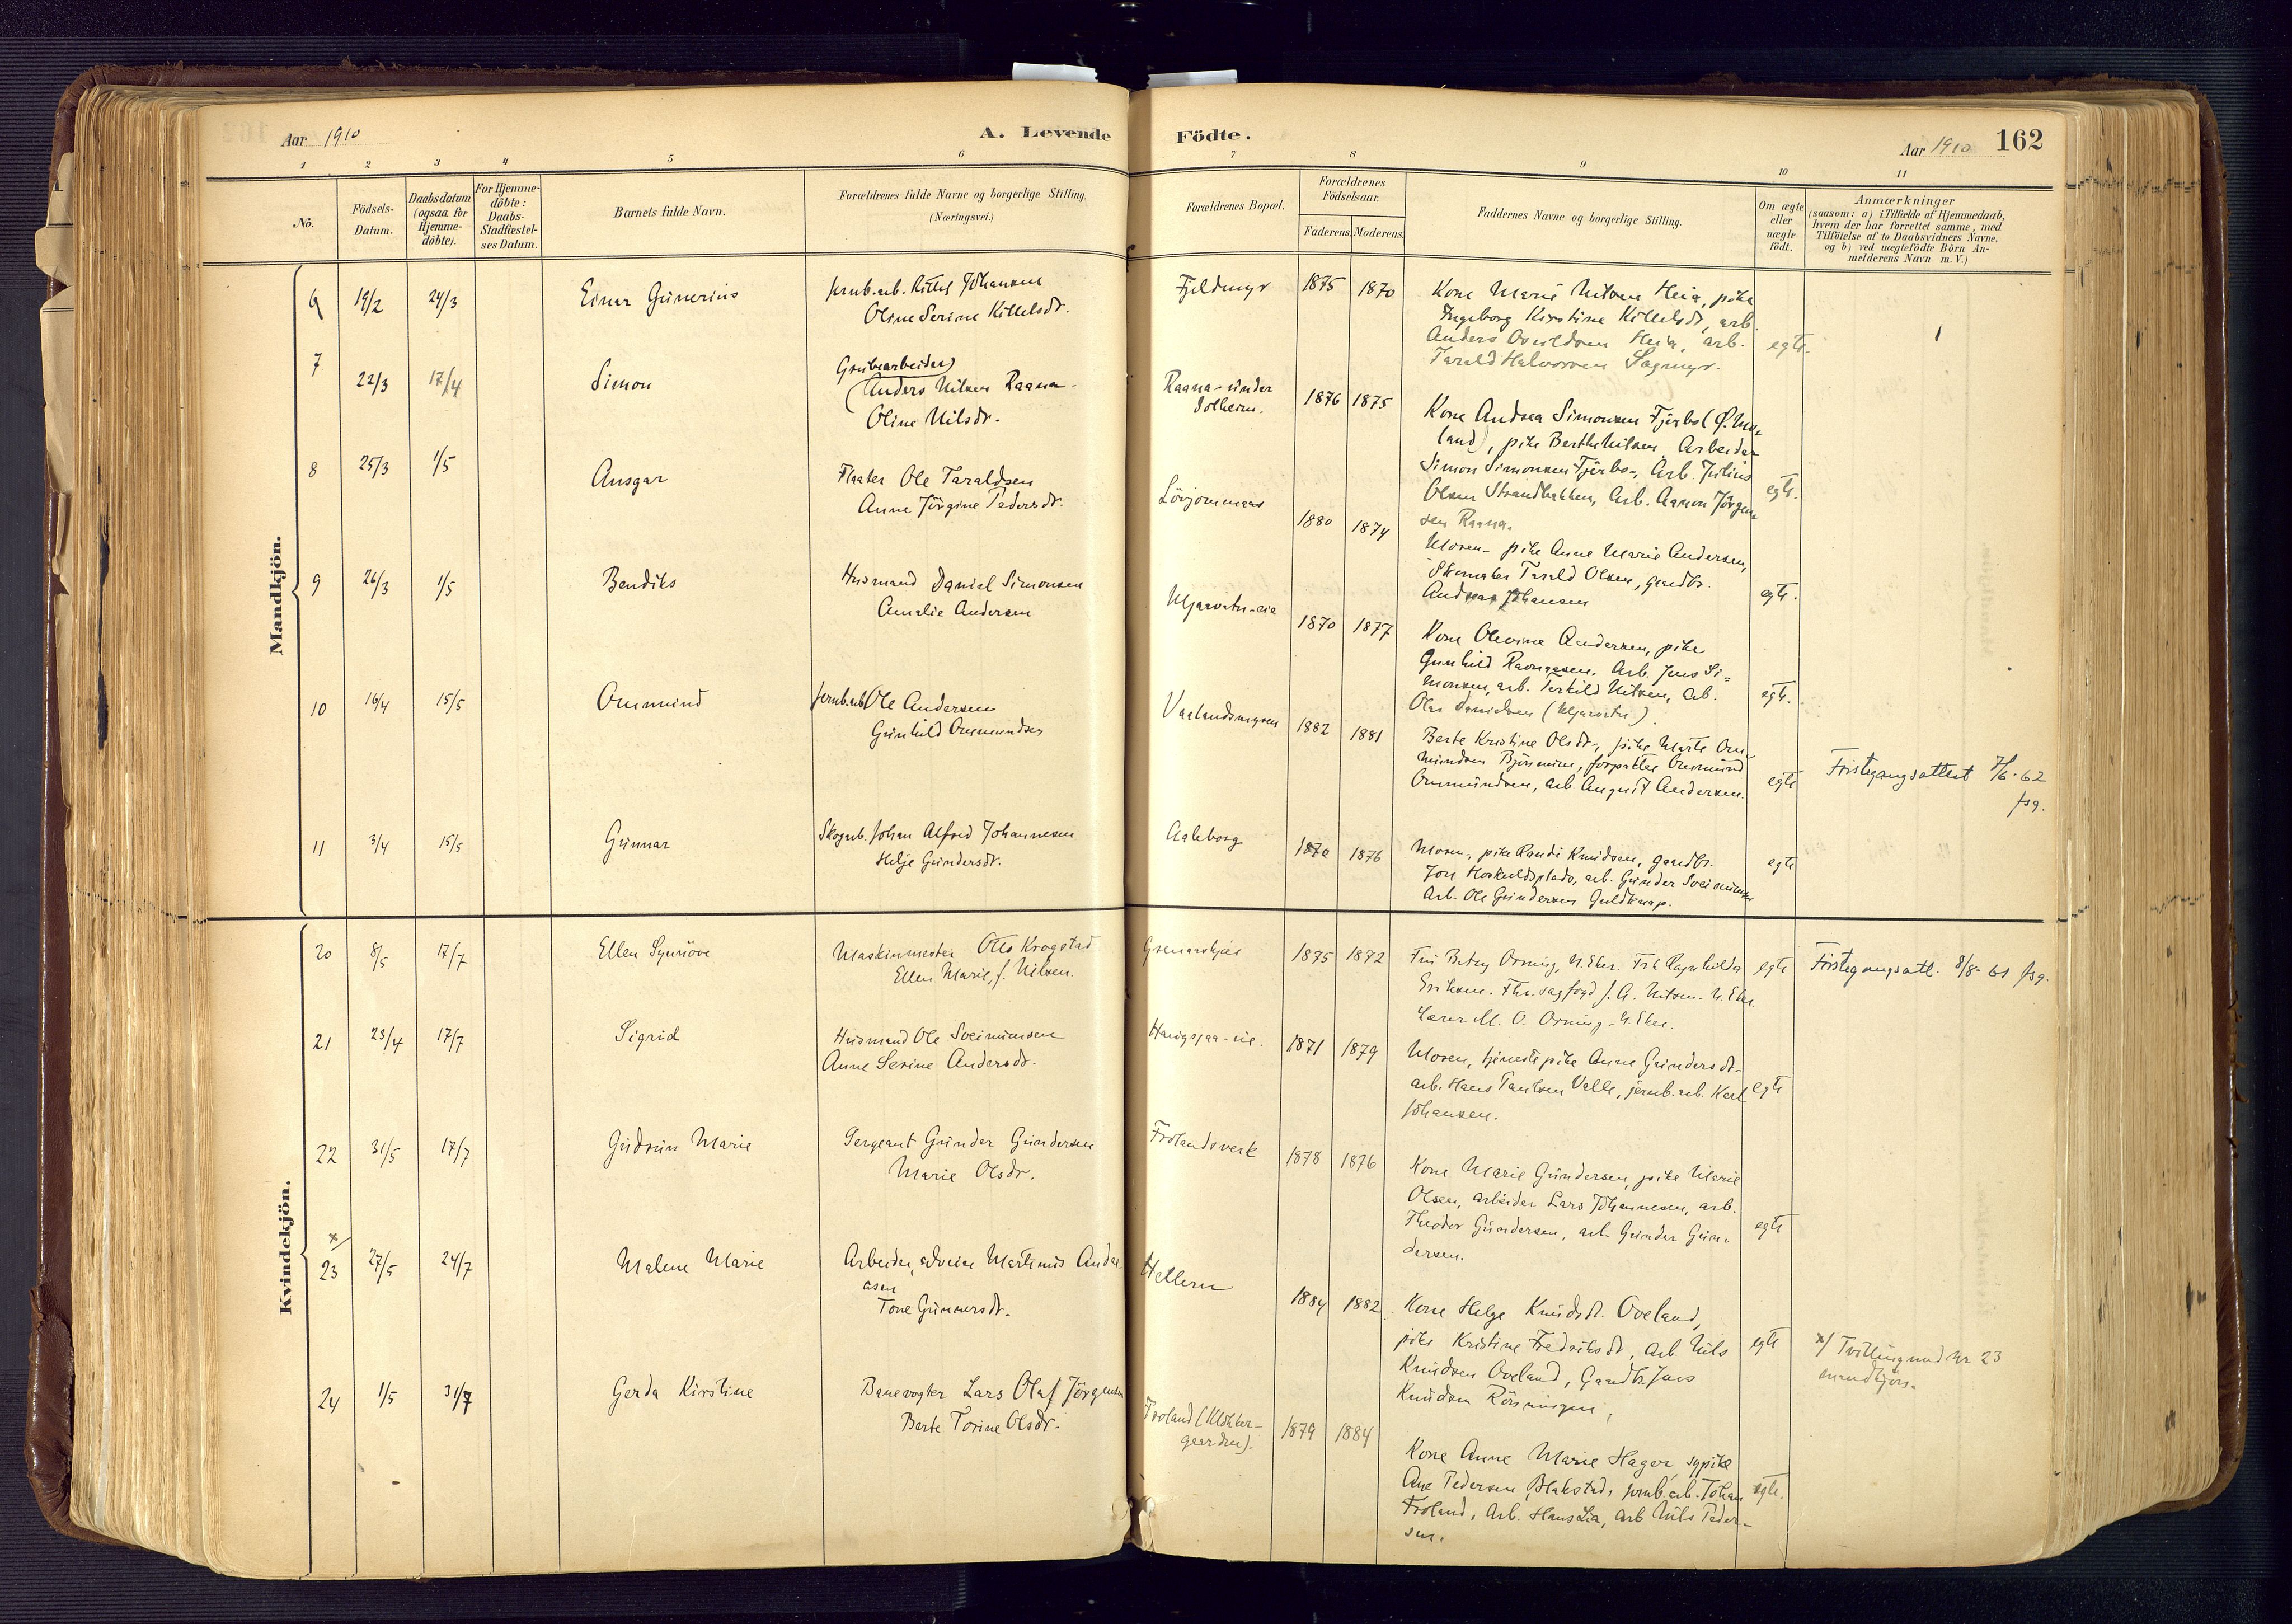 Aar 1910
A. Levende
Födte.
Aar 1910
162
1 2 3 4 5 6 7 8 9 10 11
No.
Födsels-
Datum.
Daabsdatum
(ogsaa for
Hjemme-
döbte).
For Hjemme-
döbte:
Daabs-
Stadfæstel-
ses Datum.
Barnets fulde Navn.
Forældrenes fulde Navne og borgerlige Stilling.
(Næringsvei.)
Forældrenes Bopæl.
Forældrenes
Födselsaar.
Faderens. Moderens.
Faddernes Navne og borgerlige Stilling.
Om ægte
eller
uægte
födt.
Anmærkninger
(saasom: a) i Tilfælde af Hjemmedaab,
hvem der har forrettet samme, med
Tilföielse af to Daabsvidners Navne.
og b) ved uægtefödte Börn An-
melderens Navn m. V.)
Mandkjön.
6 19/2 24/3 Einar Gunerius
Jernb.arb. Kittel Johansen
Oline Serine Kittelsdr.
Fjeldmyr 1875 1870
Kone Marie Nilsen Heia, pike
Ingeborg Kirstine Kittelsdr, arb.
Anders Osuldsen Heia, arb.
Tarald Halvorsen Sagmyr.
egte.
7 22/3 17/4 Simon
Grubearbeider
Anders Nilsen Raana.
Oline Nilsdr.
Raana-under
Solheim.
1876 1875
Kone Andrea Simonsen Fjerbo (Ø. Mo-
land), pike Berthe Nilsen, Arbeider
Simon Simonsen Fjerbo, Arb. Julius
Olsen Strandbakken, Arb. Aanon Jörgen-
sen Raana.
egte.
8 25/3 1/5 Ansgar
Ole Taraldsen
Anne Jörgine Pedersdr.
Lövjommaas 1880 1874
Moren, pike Anne Marie Andersen,
Skomaker Tarald Olsen, gaardbr.
Andreas Johansen
egte.
9 26/3 1/5 Bendiks
Husmand Daniel Simonsen
Amalie Andersen
Mjaavatn-eie 1870 1877
Kone Olevine Andersen, pike
Gunhild Arb. Jens Si-
monsen, arb. Terkild Nilsen, arb.
Olav Danielsen (Mjaavatn).
egte.
10 16/4 15/5 Ommund
Jernb.arb. Ole Andersen
Gunhild Ommundsen
Vaalandsmyren 1882 1881
Berte Kristine Olsdr., pike Marte Om-
mundsen forpakter Ommund
Ommundsen, arb. August Andersen.
egte
Förstegangsattest 7/6-62
fsg.
11 3/4 15/5 Gunnar
Skogarb. Johan Alfred Johannesen
Helje Gundersdr.
Aaleborg 1870 1876
Moren, pike Randi Knudsen, gaardbr.
Jon arb. Gunder
Arb. Ole Gundersen Guldknap.
egte
Kvindekjön.
20 8/5 17/7 Ellen Synnöve
Maskinmester Otto Krogstad
Ellen Marie, f. Nilsen.
1875 1872
Fru Betsy Orning, N. Eker. Frk Ragnhilda
Eriksen. J. A. Nilsen. N. Eker
Lærer M. O. Orning. N. Eker.
egte
Förstegangsatt. 8/8-61 fsg.
21 23/4 17/7 Sigrid
Husmand Ole
Anne Serine Andersdr.
1871 1879
Moren, tjenestepike Anne Gundersdr.
arb. Hans Paulsen Valle, jernb.arb. Karl
Johansen.
egte
22 31/5 17/7 Gudrun Marie
Sergeant Gunder Gundersen
Marie Olsdr.
Frolandsverk 1878 1876
Kone Marie Gundersen, pike Marie
Olsen, arbeider Lars Johannesen, arb.
Theodor Gundersen, arb. Gunder Gun-
dersen.
egte
x/
23 27/5 24/7 Malene Marie
Arbeider, Martinus Andre-
asen
Tone Gunnersdr.
Hellern 1884 1882
Kone Helge Knudsdr. Oveland,
pike Kristine Fredriksdr, Arb. Nils
Knudsen Oveland, Gaardbr. Jens
Knudsen
egte
x/ Tvilling med nr 23
mandkjön.
24 1/5 31/7 Gerda Kirstine
Banevogter Lars Olaf Jörgensen
Berte Torine Olsdr.
Froland (Klokker-
gaarden).
1879 1884
Kone Anne Marie Hagar, sypike
Ane Pedersen Blakstad, jernb.arb. Johan
Froland, Arb. Hans Lia, Arb Nils Peder-
sen.
egte.